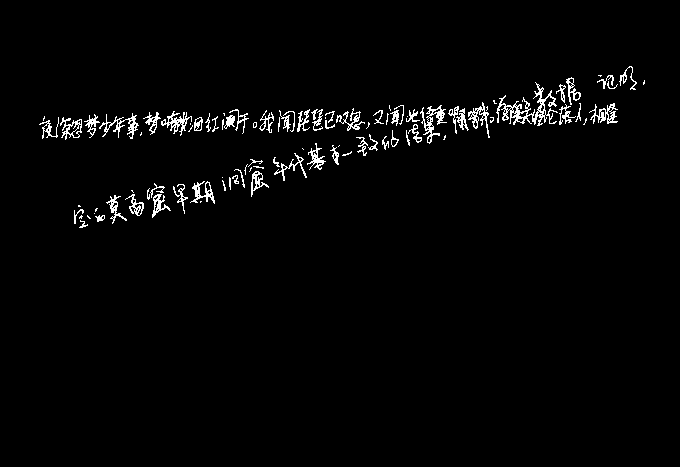 夜深忽梦少年事,梦啼妆泪红阑干。我闻琵琶已叹息,又闻此语重唧唧。同是天涯沦落人,相逢
定的莫高窟早期洞窟年代基本一致的结果, 数据 证明,